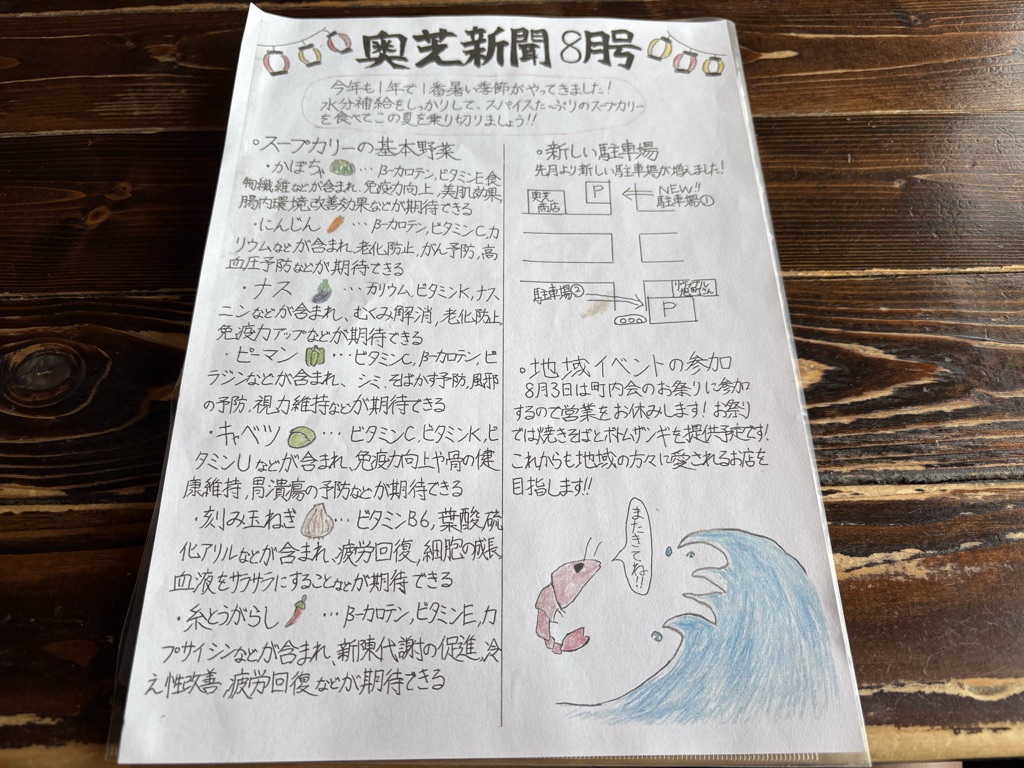 奥芝新聞8月号
今年も1年で1番暑い季節がやってきました！
水分補給をしっかりして、スパイスたっぷりのスープカリー
を食べてこの夏を乗り切りましょう!!
・スープカリーの基本野菜
・かぼちゃ … β-カロテン,ビタミンE,食
物繊維などが含まれ、免疫力向上,美肌効果,
腸内環境改善効果などが期待できる
・にんじん … β-カロテン,ビタミンC,カ
リウムなどが含まれ、老化防止,がん予防,高
血圧予防などが期待できる
・ナス … カリウム,ビタミンK,ナス
ニンなどが含まれ、むくみ解消,老化防止,
免疫力アップなどが期待できる
・ピーマン … ビタミンC,β-カロテン,ピ
ラジンなどが含まれ、シミ,そばかす予防,風邪
の予防,視力維持などが期待できる
・キャベツ … ビタミンC,ビタミンK,ビ
タミンUなどが含まれ、免疫力向上や骨の健
康維持,胃潰瘍の予防などが期待できる
・刻み玉ねぎ … ビタミンB6,葉酸,硫
化アリルなどが含まれ、疲労回復,細胞の成長,
血液をサラサラにすることなどが期待できる
・糸とうがらし … β-カロテン,ビタミンE,カ
プサイシンなどが含まれ、新陳代謝の促進,冷
え性改善,疲労回復などが期待できる
・新しい駐車場
先月より新しい駐車場が増えました！
奥芝
商店
P
NEW!!
駐車場①
駐車場②
P
・地域イベントの参加
8月3日は町内会のお祭りに参加
するので営業をお休みします！お祭り
では焼きそばとボトムザンギを提供予定です！
これからも地域の方々に愛されるお店を
目指します!!
またきてね!!